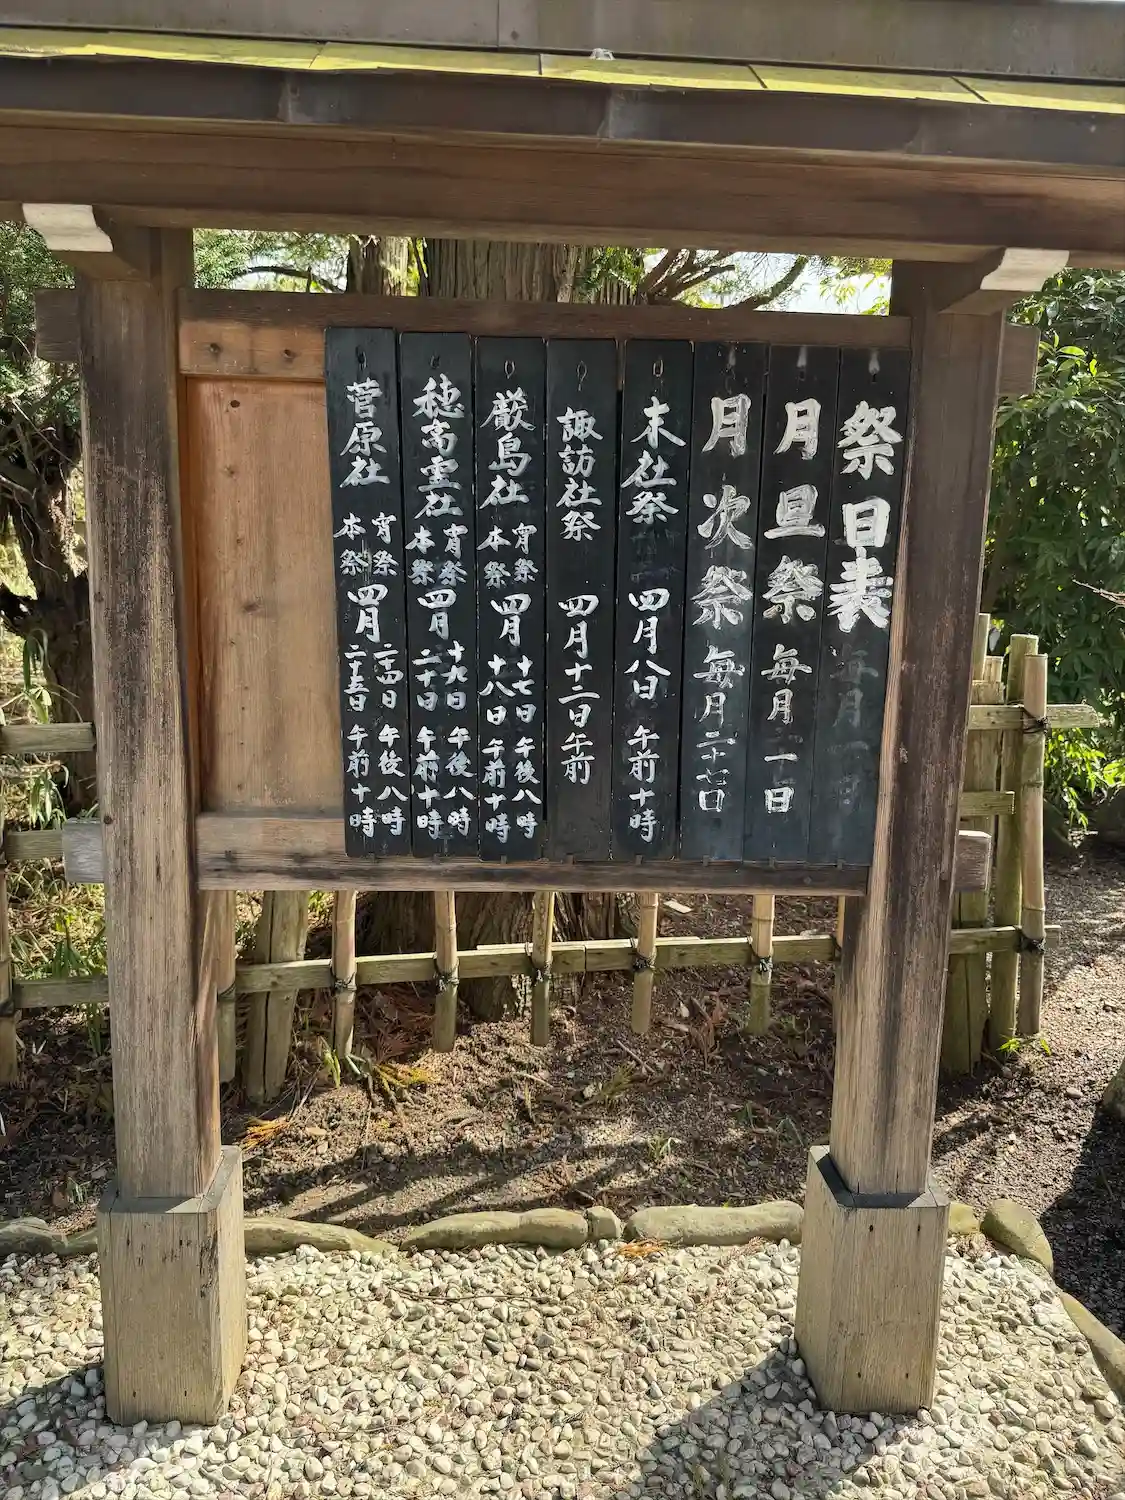 祭日表
月旦祭 毎月 一日
月次祭 毎月二十七日
末社祭 四月八日 午前十時
諏訪社祭 四月十二日午前
厳島社 宵祭 四月 十七日 午後八時
本祭 十八日 午前十時
穂高霊社 宵祭 四月 十九日 午後八時
本祭 二十日 午前十時
菅原社 宵祭 四月 二十四日 午後八時
本祭 二十五日 午前十時